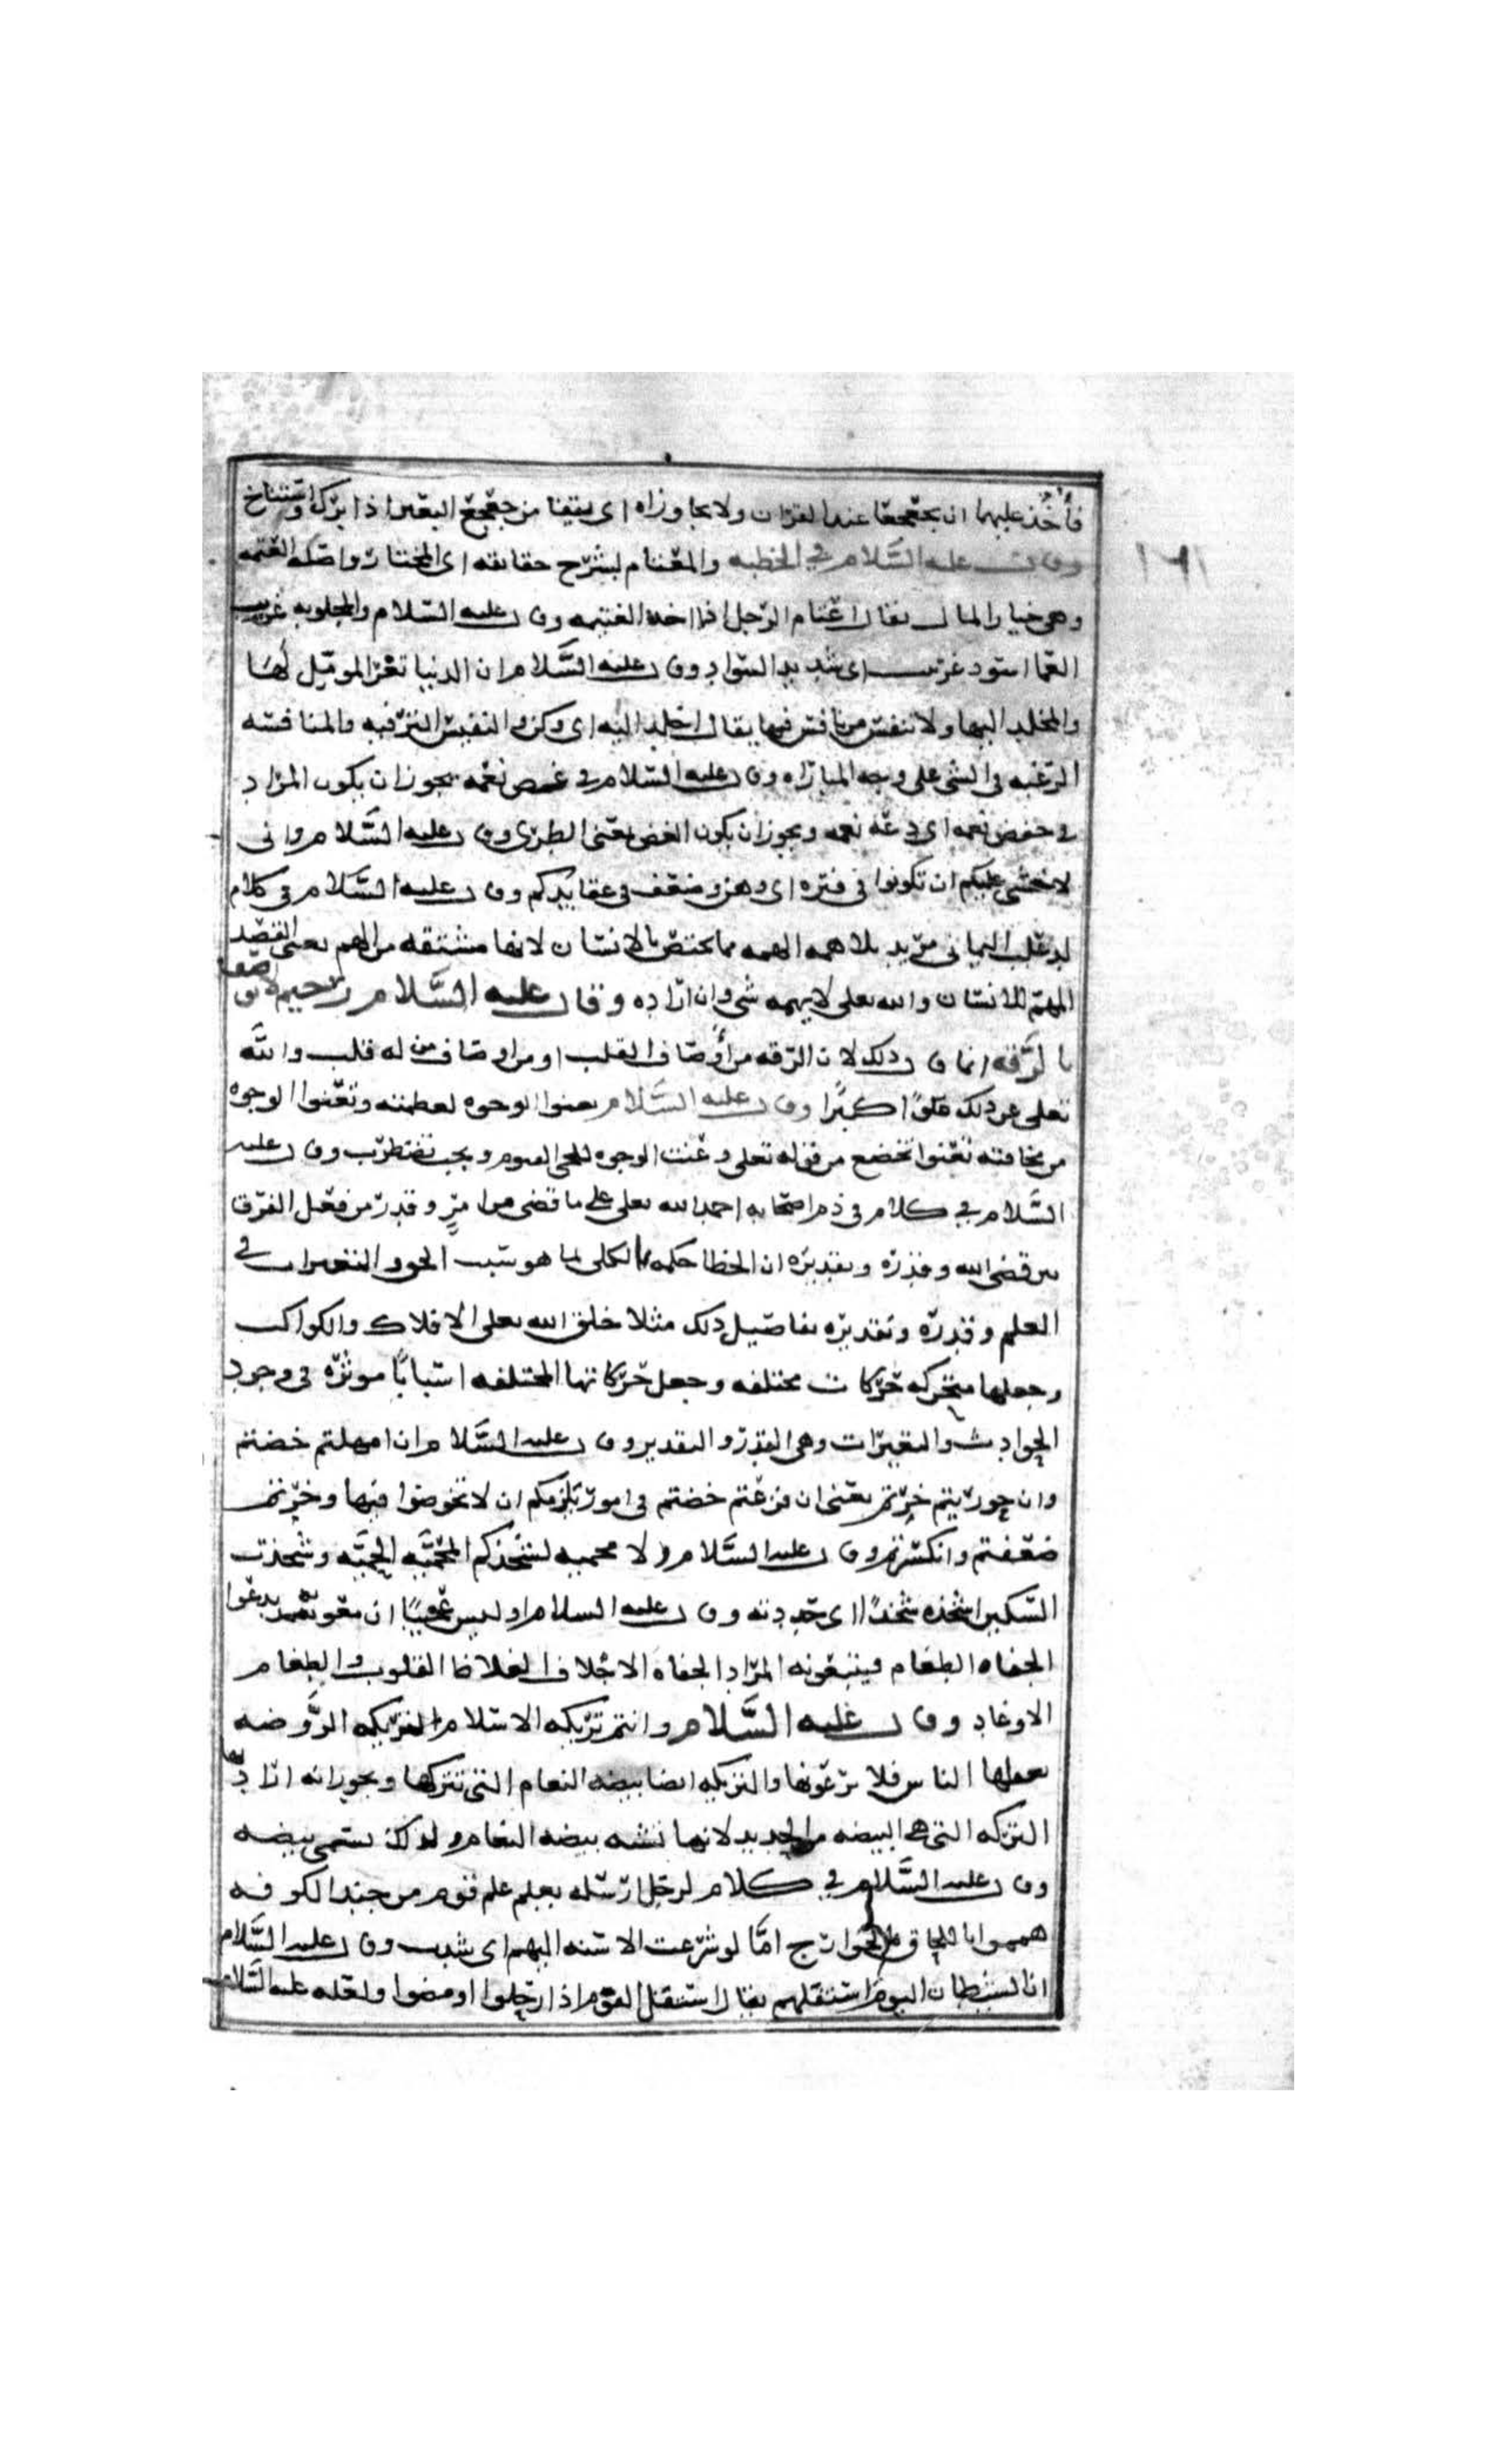 فأخذ عليهما ان يجعجعا عند القران ولا يجاوزاه اى يقيما من جعجع البعير اذا برك واستناخ
وقال عليه السَّلام في الخطبه والمعتام لشرح حقائقه اى المختار واصله العتمه ١٦١
وهى خيار المال يقال اعتام الرجل اذا اخذ العتيمه وقال عليه السّلام والمجلو به غربيب
العما اسود غربيب اى شديد السّواد وقال عليه السَّلام ان الدنيا تغر الموتمل لها
والمخلد اليها ولا تنفس من نافس فيها يقال اخلد اليه اى ركن والنفيس النزفيه والمنافسه
الرغبه فى الشى على وجه المباراه وقال عليه السّلام في غض نعمه يجوز ان يكون المراد
في خفض نعمه اى دعّه نعمه ويجوز ان يكون الغض يعنى الطرى وقال عليه السَّلام وانى
لاخشى عليكم ان تكونوا فى فتره اى وهن وضعف فى عقايدكم وقال عليه السَّلام في كلام
لدعلب اليمانى مريد بلا همه الهمه مما يختص بالانسان لانها مشتقه من الهم يعنى القصد
المهم للانسان والله تعلى لا يهمه شى وان اراده وقال عليه السَّلام رحيم لا يوصف
بالرَّقه انما قال ذلك لان الرقه من أوصاف القلب او من اوصاف من له قلب والله
تعلى عن ذلك علوًا كبيرًا وقال عليه السَّلام تعنوا الوجوه لعظمته وتعنوا الوجوه
من مخافته تعنوا تخضع من قوله تعلى وعنت الوجوه للحى القيوم ويجب تضطرب وقال عليه
السَّلام في كلام فى ذم اصحابه احمد الله تعلى على ما قضى من امرٍ وقدر من فعل الفرق
بين قضى الله وقدره وتقديره ان الخطا حكمه الكلى لما هو سبب الحود التغيرات في
العلم وقدره وتقديره تفاصيل ذلك مثلا خلق الله تعلى الافلاك والكواكب
وجعلها متحركه حركات مختلفه وجعل حركاتها المختلفه اسبابًا موثره فى وجود
الحوادث والتغيرات وهى القدر والتقدير وقال عليه السَّلام ان امهلتم خضتم
وان حوربتم خرتم يعنى ان فزعتم خضتم فى امور تلزمكم ان لا تخوضوا فيها وخرتم
ضعفتم وانكسرتم وقال عليه السَّلام ولا محميه تشحذكم المحميَّه الحميَّه وشحذت
السّكين اشحذه شحذًا اى حددته وقال عليه السلام او ليس عجيبًا ان معويه يدعوا
الجفاه الطغام فيتبعونه المراد بالجفاة الاجلاف الغلاظ القلوب والطغام
الاوغاد وقال عليه السَّلام وانتم تريكه الاسلام التريكه الرَّوضه
يغفلها الناس فلا يرعونها والتريكه ايضا بيضه النعام التى تتركها ويجوز انه اراد بها
التركه التى هى البيضه من الحديد لانها تشبه بيضه النعام ولذلك تسمى بيضه
وقال عليه السَّلام في كلام لرجل ارسله يعلم علم قوم من جند الكوفه
هموا باللحاق بالخوارج امَّا لو شرعت الاسنه اليهم اى شدت وقال عليه السَّلام
ان الشيطان اليوم استقلهم يقال استقل القوم اذا ارتحلوا او مضوا ولعله عليه السَّلام